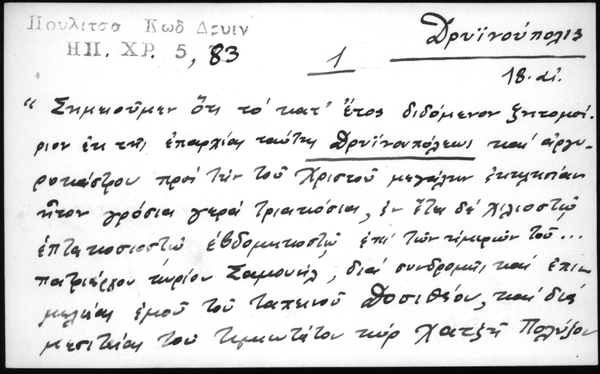 Πουλιτσα Κωδ Δρυιν
ΗΠ. ΧΡ. 5, 83
1
Δρυϊνούπολις
18. αἰ.
" Σημειοῦμεν ὅτι τό κατ' ἔτος διδόμενον ζητομοί-
ριον ἐκ τῆς ἐπαρχίας ταύτης Δρυϊνουπόλεως καί ἀργυ-
ροκάστρου πρός τήν τοῦ Χριστοῦ μεγάλην ἐκκλησίαν
ἦτον γρόσια γερά τριακόσια, ἐν ἔτει δέ χιλιοστῷ
ἑπτακοσιοστῷ ἑβδομηκοστῷ ἐπί τῶν ἡμερῶν τοῦ ...
πατριάρχου κυρίου Σαμουήλ, διά συνδρομῆς καί ἐπι-
μελείας ἐμοῦ τοῦ ταπεινοῦ Δοσιθέου, καί διά
μεσιτείας τοῦ τιμιωτάτου κύρ Χατζῆ Πολύζου